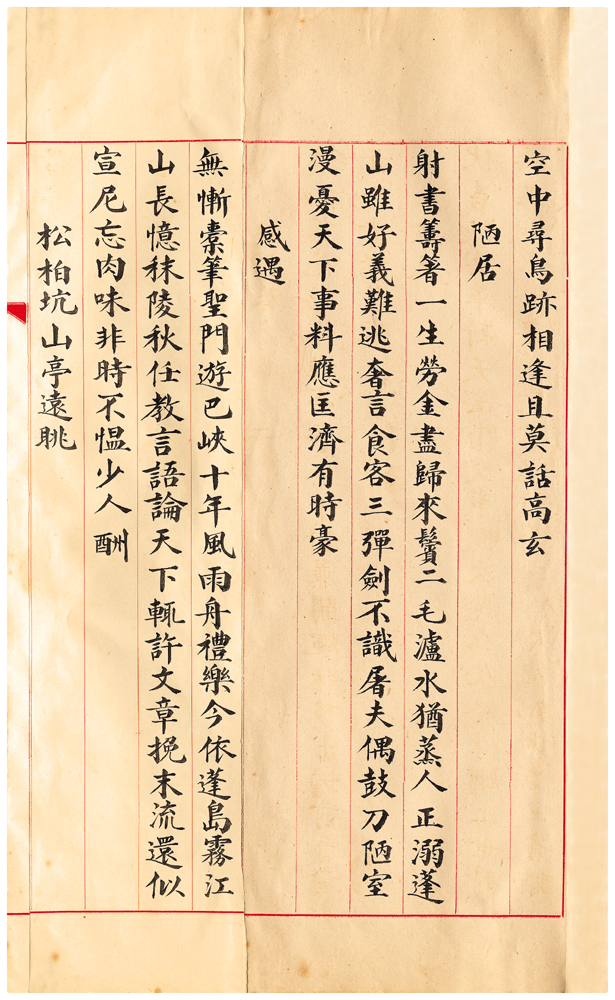 空中尋鳥跡相逢且莫話高玄
陋居
射書籌箸一生勞金盡歸來鬢二毛瀘水猶蒸人正溺蓬
山雖好義難逃奢言食客三彈劍不識屠夫偶鼓刀陋室
漫憂天下事料應匡濟有時豪
感遇
無慚橐筆聖門遊巴峽十年風雨舟禮樂今依蓬島霧江
山長憶秣陵秋任教言語論天下輒許文章挽末流還似
宣尼忘肉味非時不慍少人酬
松柏坑山亭遠眺